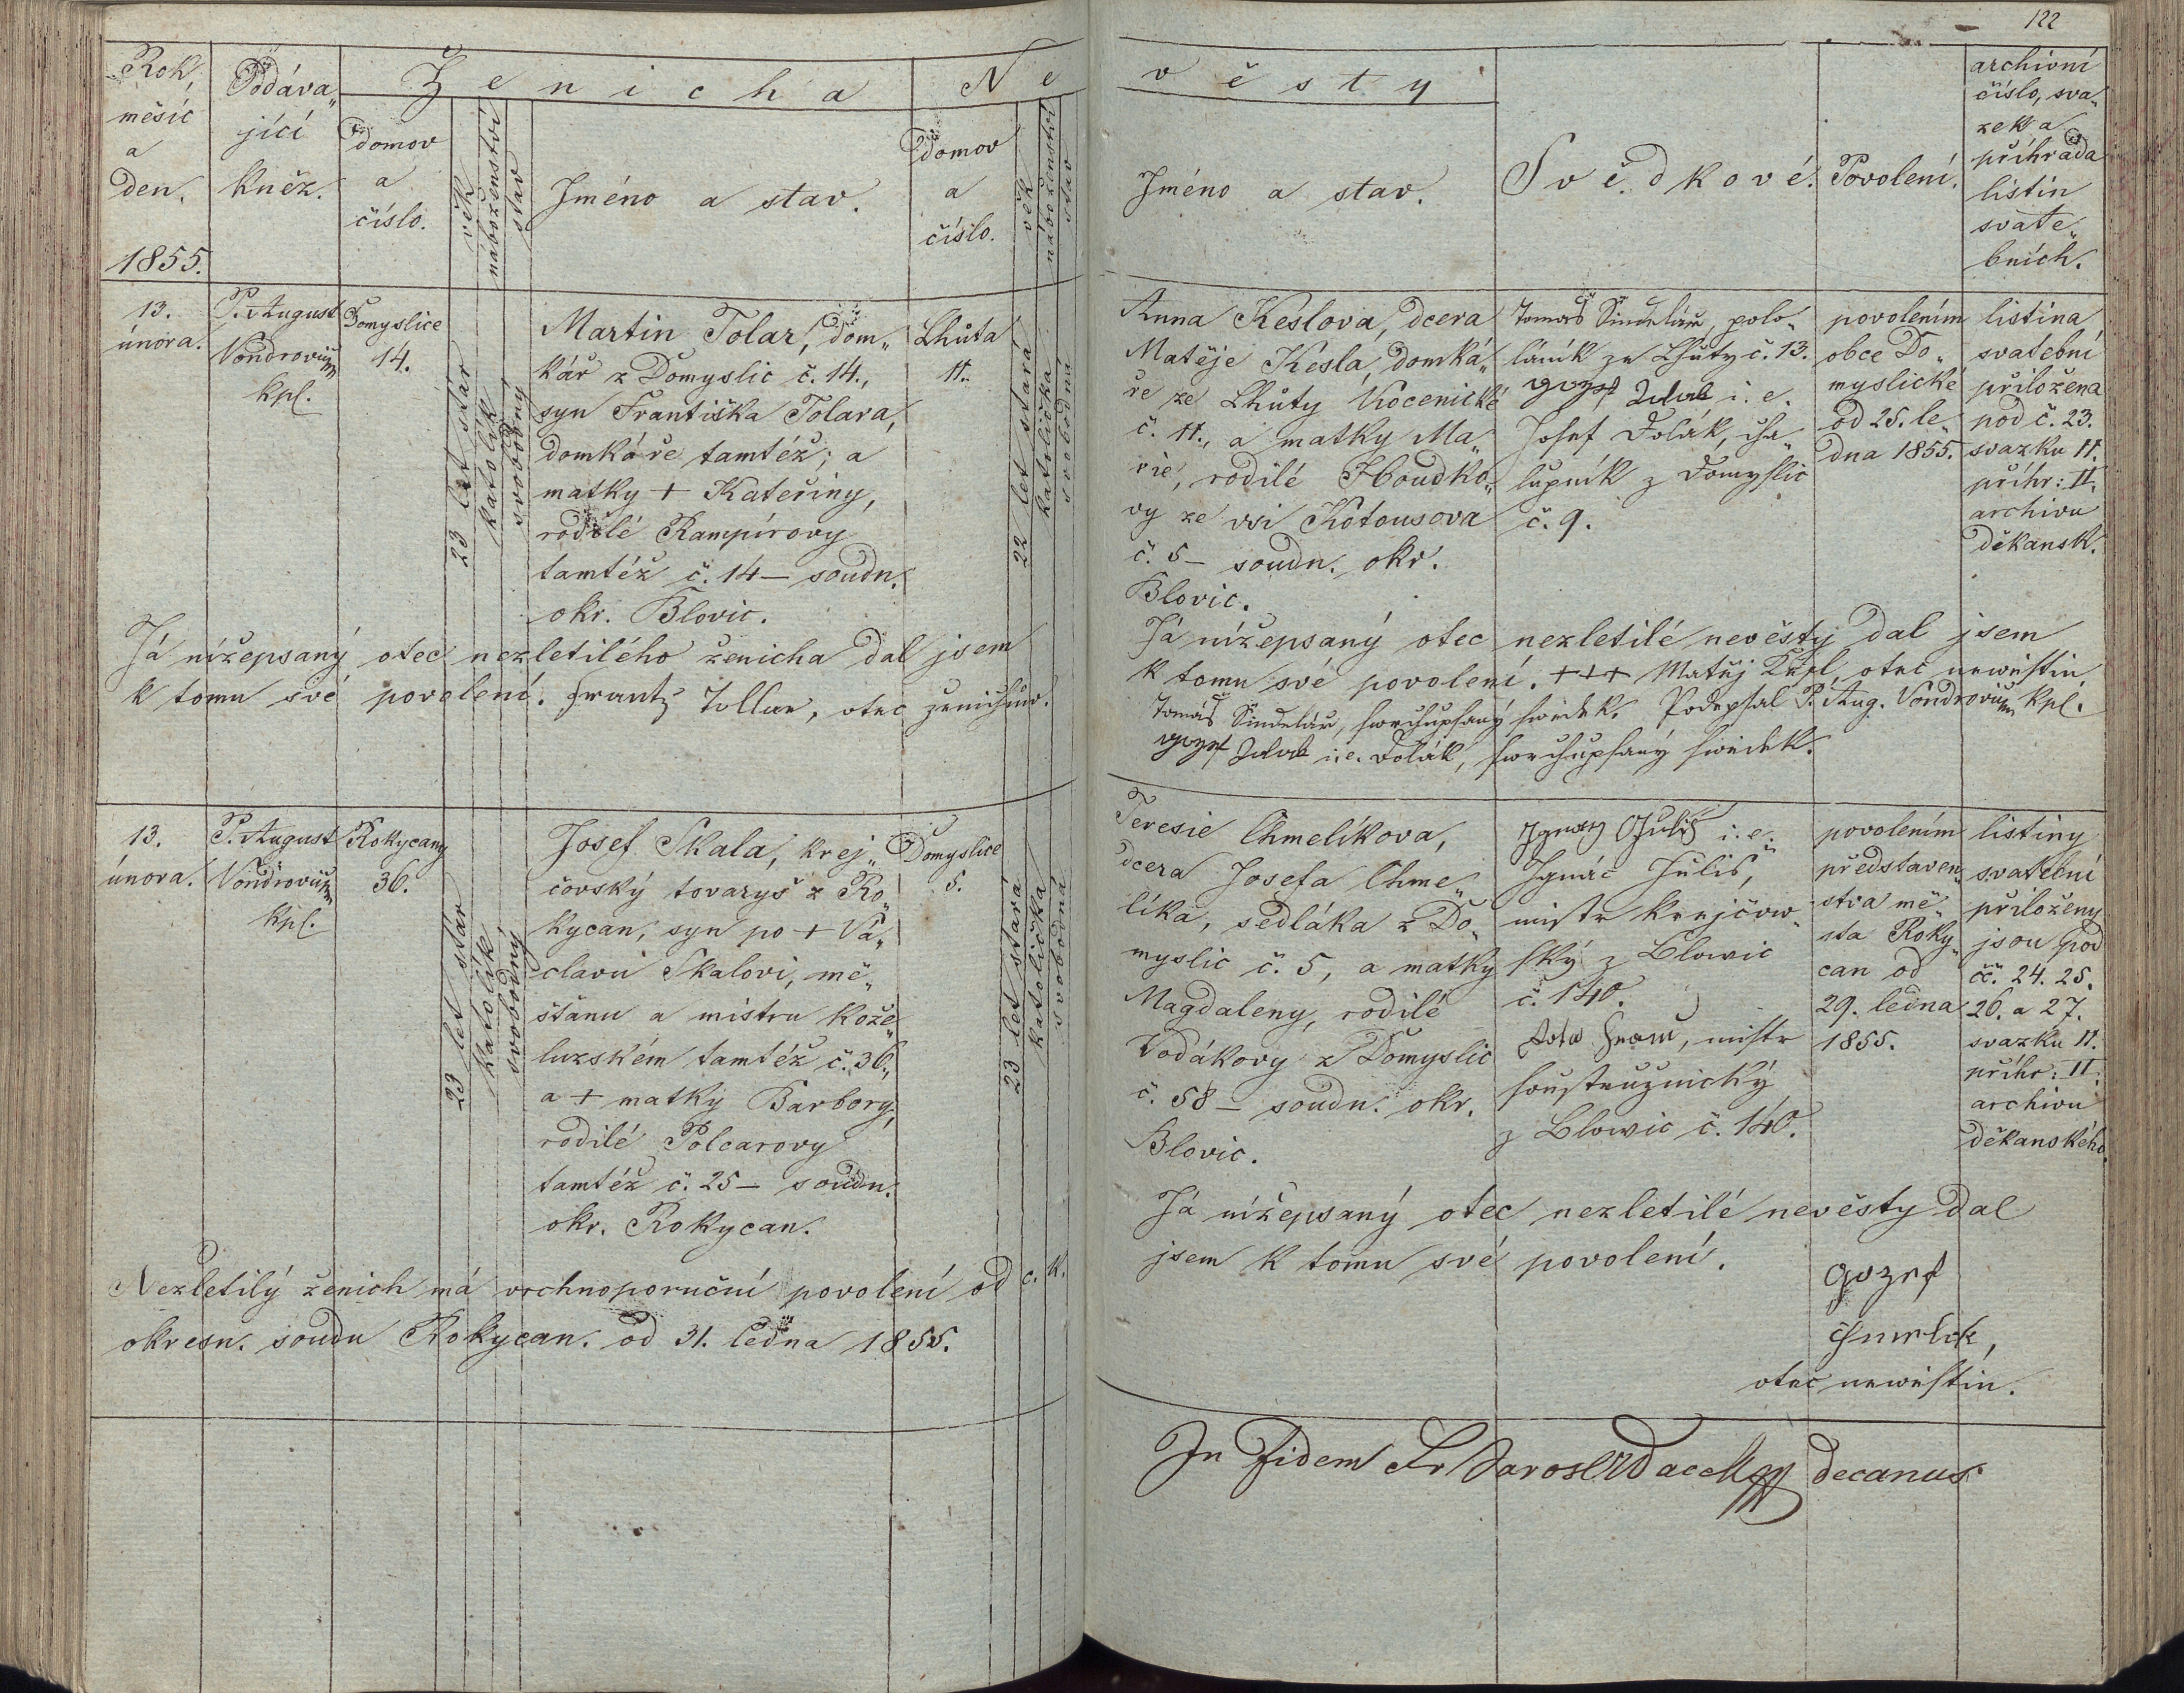 122
Rok,
měsíc
a
den.
1855.
Podáva„
jící
kněz.
Ženicha
domov
a
číslo.
věk
náboženství
stav
Jméno a stav.
Ne
domov
a
číslo.
věk
náboženství
stav
věsty
Jméno a stav.
Svědkové.
Povolení.
archivní
číslo, sva„
zek a
příhrada
listin
svate„
bních.
13.
února.
P. August
Vondrovic
kpl.
Domyslice
14.
23 let stár
katolík
svobodný
Martin Tolar, dom„
kář z Domyslic č. 14.,
syn Františka Tolara,
domkáře tamtéž; a
matky + Kateřiny,
rodilé Rampírovy
tamtéž č. 14 – soudn.
okr. Blovic.
Lhůta
11.
22 let stará
katolička
svobodná
Anna Keslova, dcera
Matěje Kesla, domká„
ře ze Lhůty Kocenické
č. 11., a matky Ma„
rie, rodilé Houdko„
vy ze vsi Kotousova
č. 5 – soudn. okr.
Blovic.
Tomáš Šindelář, polo„
láník ze Lhůty č. 13.
i. e.
Josef Dolák, cha„
lupník z Domyslic
č. 9.
povolením
obce Do„
myslické
od 25. le„
dna 1855.
listina
svatební
přiložena
pod č. 23.
svazku II.
příhr: II.
archivu
děkansk.
Já nížepsaný otec nezletilého ženicha dal jsem
k tomu své povolení. Frantz Tollar, otec ženichův.
Já nížepsaný otec nezletilé nevěsty dal jsem
k tomu své povolení. +++ Matěj Kesl, otec newěstin
Tomáš Šindelář, swrchupsaný swědek. Podepsal P. Aug. Vondrovic kpl.
i. e. Dolák, swrchupsaný swědek.
13.
února.
P. August
Vondrovic
kpl.
Rokycany
36.
23 let stár
katolík
svobodný
Josef Skala, krej„
čovský tovaryš z Ro„
kycan, syn po + Vá„
clavu Skalovi, mě„
šťanu a mistru kože„
luzském tamtéž č. 36.,
a + matky Barbory,
rodilé Polcarovy
tamtéž č. 25 – soudn.
okr. Rokycan.
Domyslice
5.
23 let stará
katolička
svobodná
Teresie Chmelíkova,
dcera Josefa Chme„
líka, sedláka z Do„
myslic č. 5, a matky
Magdaleny, rodilé
Vodákovy z Domyslic
č. 58 – soudn. okr.
Blovic.
Ignatz Juliš i. e.
Ignác Juliš,
mistr krejčow„
ský z Blowic
č. 140.
mistr
soustružnický
z Blowic č. 140.
povolením
představen„
stva mě„
sta Roky„
can od
29. ledna
1855.
listiny
svatební
přiloženy
jsou pod
čč. 24. 25.
26. a 27.
svazku II.
příhr: II.
archivu
děkanského.
Nezletilý ženich má vrchnoporuční povolení od c. k.
okresn. soudu Rokycan. od 31. ledna 1855.
Já nížepsaný otec nezletilé nevěsty dal
jsem k tomu své povolení.
Gozef
Chmelik,
otec newěstin.
In Fidem decanus